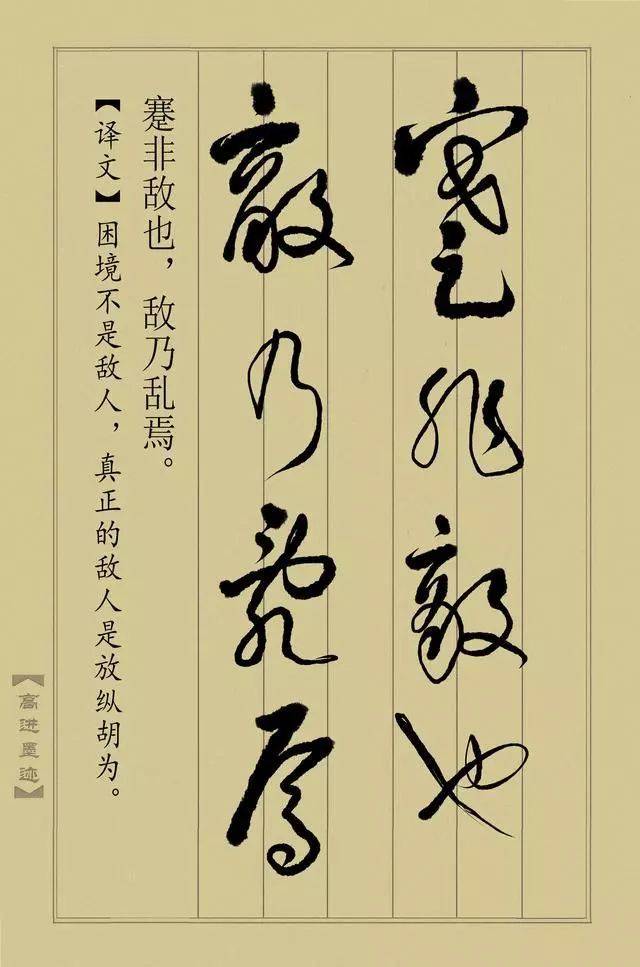 蹇非敌也
敌乃乱焉
蹇非敌也，敌乃乱焉。
【译文】困境不是敌人，真正的敌人是放纵胡为。
【高进墨迹】